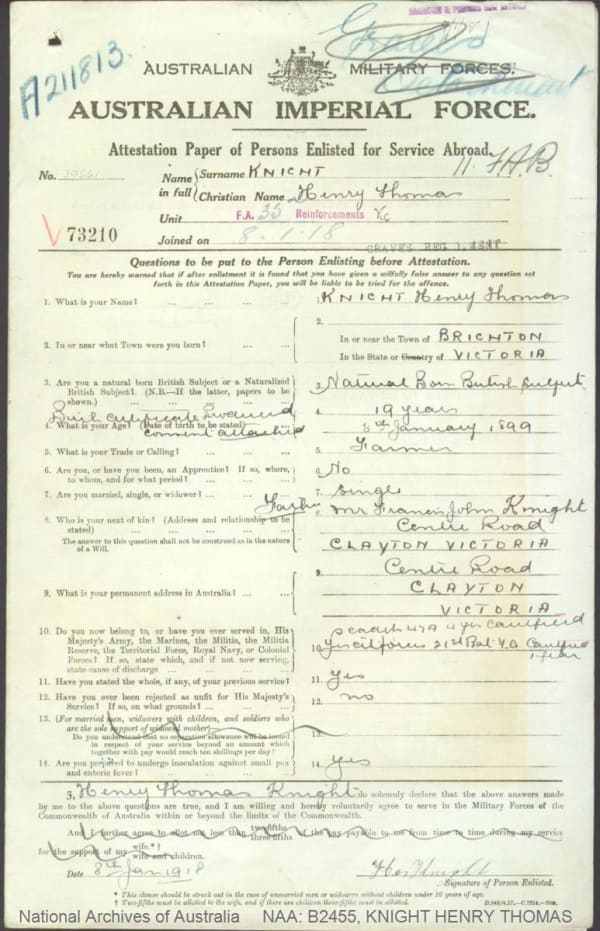 A211813.
Graves
Detachment
AUSTRALIAN MILITARY FORCES.
AUSTRALIAN IMPERIAL FORCE.
Attestation Paper of Persons Enlisted for Service Abroad.
No. 39661 Name in full Surname KNIGHT 11. F.A.B.
Christian Name Henry Thomas
Unit F.A. 35 Reinforcements Vic
V 73210 Joined on 8.1.18
GRAVES REG
Questions to be put to the Person Enlisting before Attestation.
You are hereby warned that if after enlistment it is found that you have given a wilfully false answer to any question set
forth in this Attestation Paper, you will be liable to be tried for the offence.
1. What is your Name? ... ... ... 1. KNIGHT Henry Thomas
2. In or near what Town were you born? ... ... 2. In or near the Town of BRIGHTON
In the State or Country of VICTORIA
3. Are you a natural born British Subject or a Naturalized
British Subject? (N.B.—If the latter, papers to be
shown.) ... ... ... 3. Natural Born British Subject
Birth certificate Produced
consent attached
4. What is your Age? (Date of birth to be stated) 4. 19 years
8th January 1899
5. What is your Trade or Calling? ... 5. Farmer
6. Are you, or have you been, an Apprentice? If so, where,
to whom, and for what period? ... ... 6. No
7. Are you married, single, or widower? ... ... 7. Single
Father
8. Who is your next of kin? (Address and relationship to be
stated) 8. Mr Francis John Knight
Centre Road
The answer to this question shall not be construed as in the nature
of a Will. CLAYTON VICTORIA
9. What is your permanent address in Australia? ... ... 9. Centre Road
CLAYTON
VICTORIA
10. Do you now belong to, or have you ever served in, His
Majesty's Army, the Marines, the Militia, the Militia
Reserve, the Territorial Force, Royal Navy, or Colonial
Forces? If so, state which, and if not now serving,
state cause of discharge ... ... 10. Cadets 47A 4 yrs Caulfield
Yes citforces 21st Bat. F.A. Caulfield
1 year
11. Have you stated the whole, if any, of your previous service? 11. Yes
12. Have you ever been rejected as unfit for His Majesty's
Service? If so, on what grounds? ... ... 12. no
13. (For married men, widowers with children, and soldiers who
are the sole support of widowed mother)—
Do you understand that no separation allowance will be issued
in respect of your service beyond an amount which
together with pay would reach ten shillings per day? 13.
14. Are you prepared to undergo inoculation against small pox
and enteric fever? ... ... ... 14. yes
I, Henry Thomas Knight do solemnly declare that the above answers made
by me to the above questions are true, and I am willing and hereby voluntarily agree to serve in the Military Forces of the
Commonwealth of Australia within or beyond the limits of the Commonwealth.
And I further agree to allot not less than two-fifths three-fifths of the pay payable to me from time to time during my service
for the support of my wife.*†
wife and children.
Date 8th Jan 1918
Signature of Person Enlisted.
* This clause should be struck out in the case of unmarried men or widowers without children under 16 years of age.
† Two-fifths must be allotted to the wife, and if there are children three-fifths must be allotted.
National Archives of Australia NAA: B2455, KNIGHT HENRY THOMAS